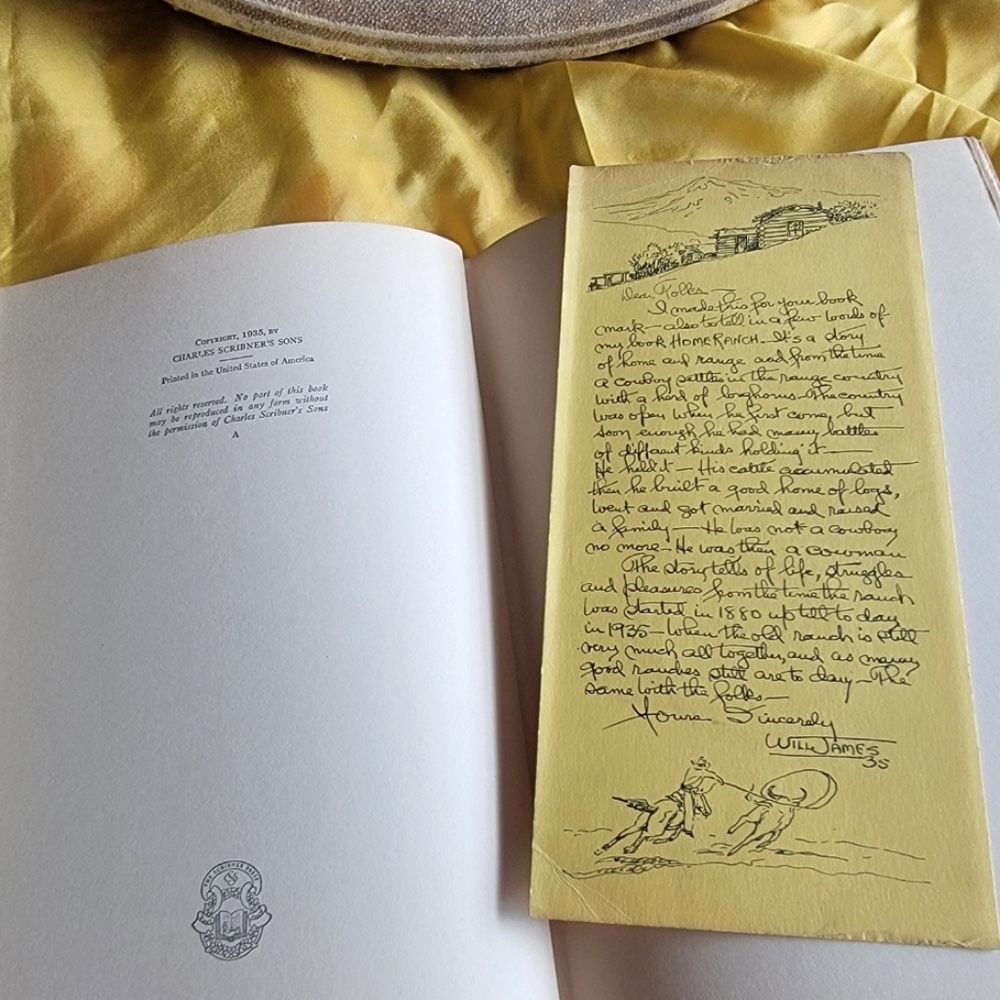 COPYRIGHT, 1935, BY
CHARLES SCRIBNER'S SONS
Printed in the United States of America
All rights reserved. No part of this book
may be reproduced in any form without
the permission of Charles Scribner's Sons
A
THE SCRIBNER PRESS
Dear Folks—
I made this for your book
mark— also to tell in a few words of
my book HOME RANCH. It's a story
of home and range and from the time
a cowboy settles in the range country
with a herd of longhorns. The country
was open when he first come, but
soon enough he had many battles
of different kinds holding it—
He held it— His cattle accumulated
then he built a good home of logs,
went and got married and raised
a family— He was not a cowboy
no more— He was then a cowman
The story tells of life, struggles
and pleasures from the time the ranch
was started in 1880 up till to day
in 1935— When the old ranch is still
very much all together, and as many
good ranches still are to day— The
same with the folks—
Yours Sincerely
WILL JAMES
35